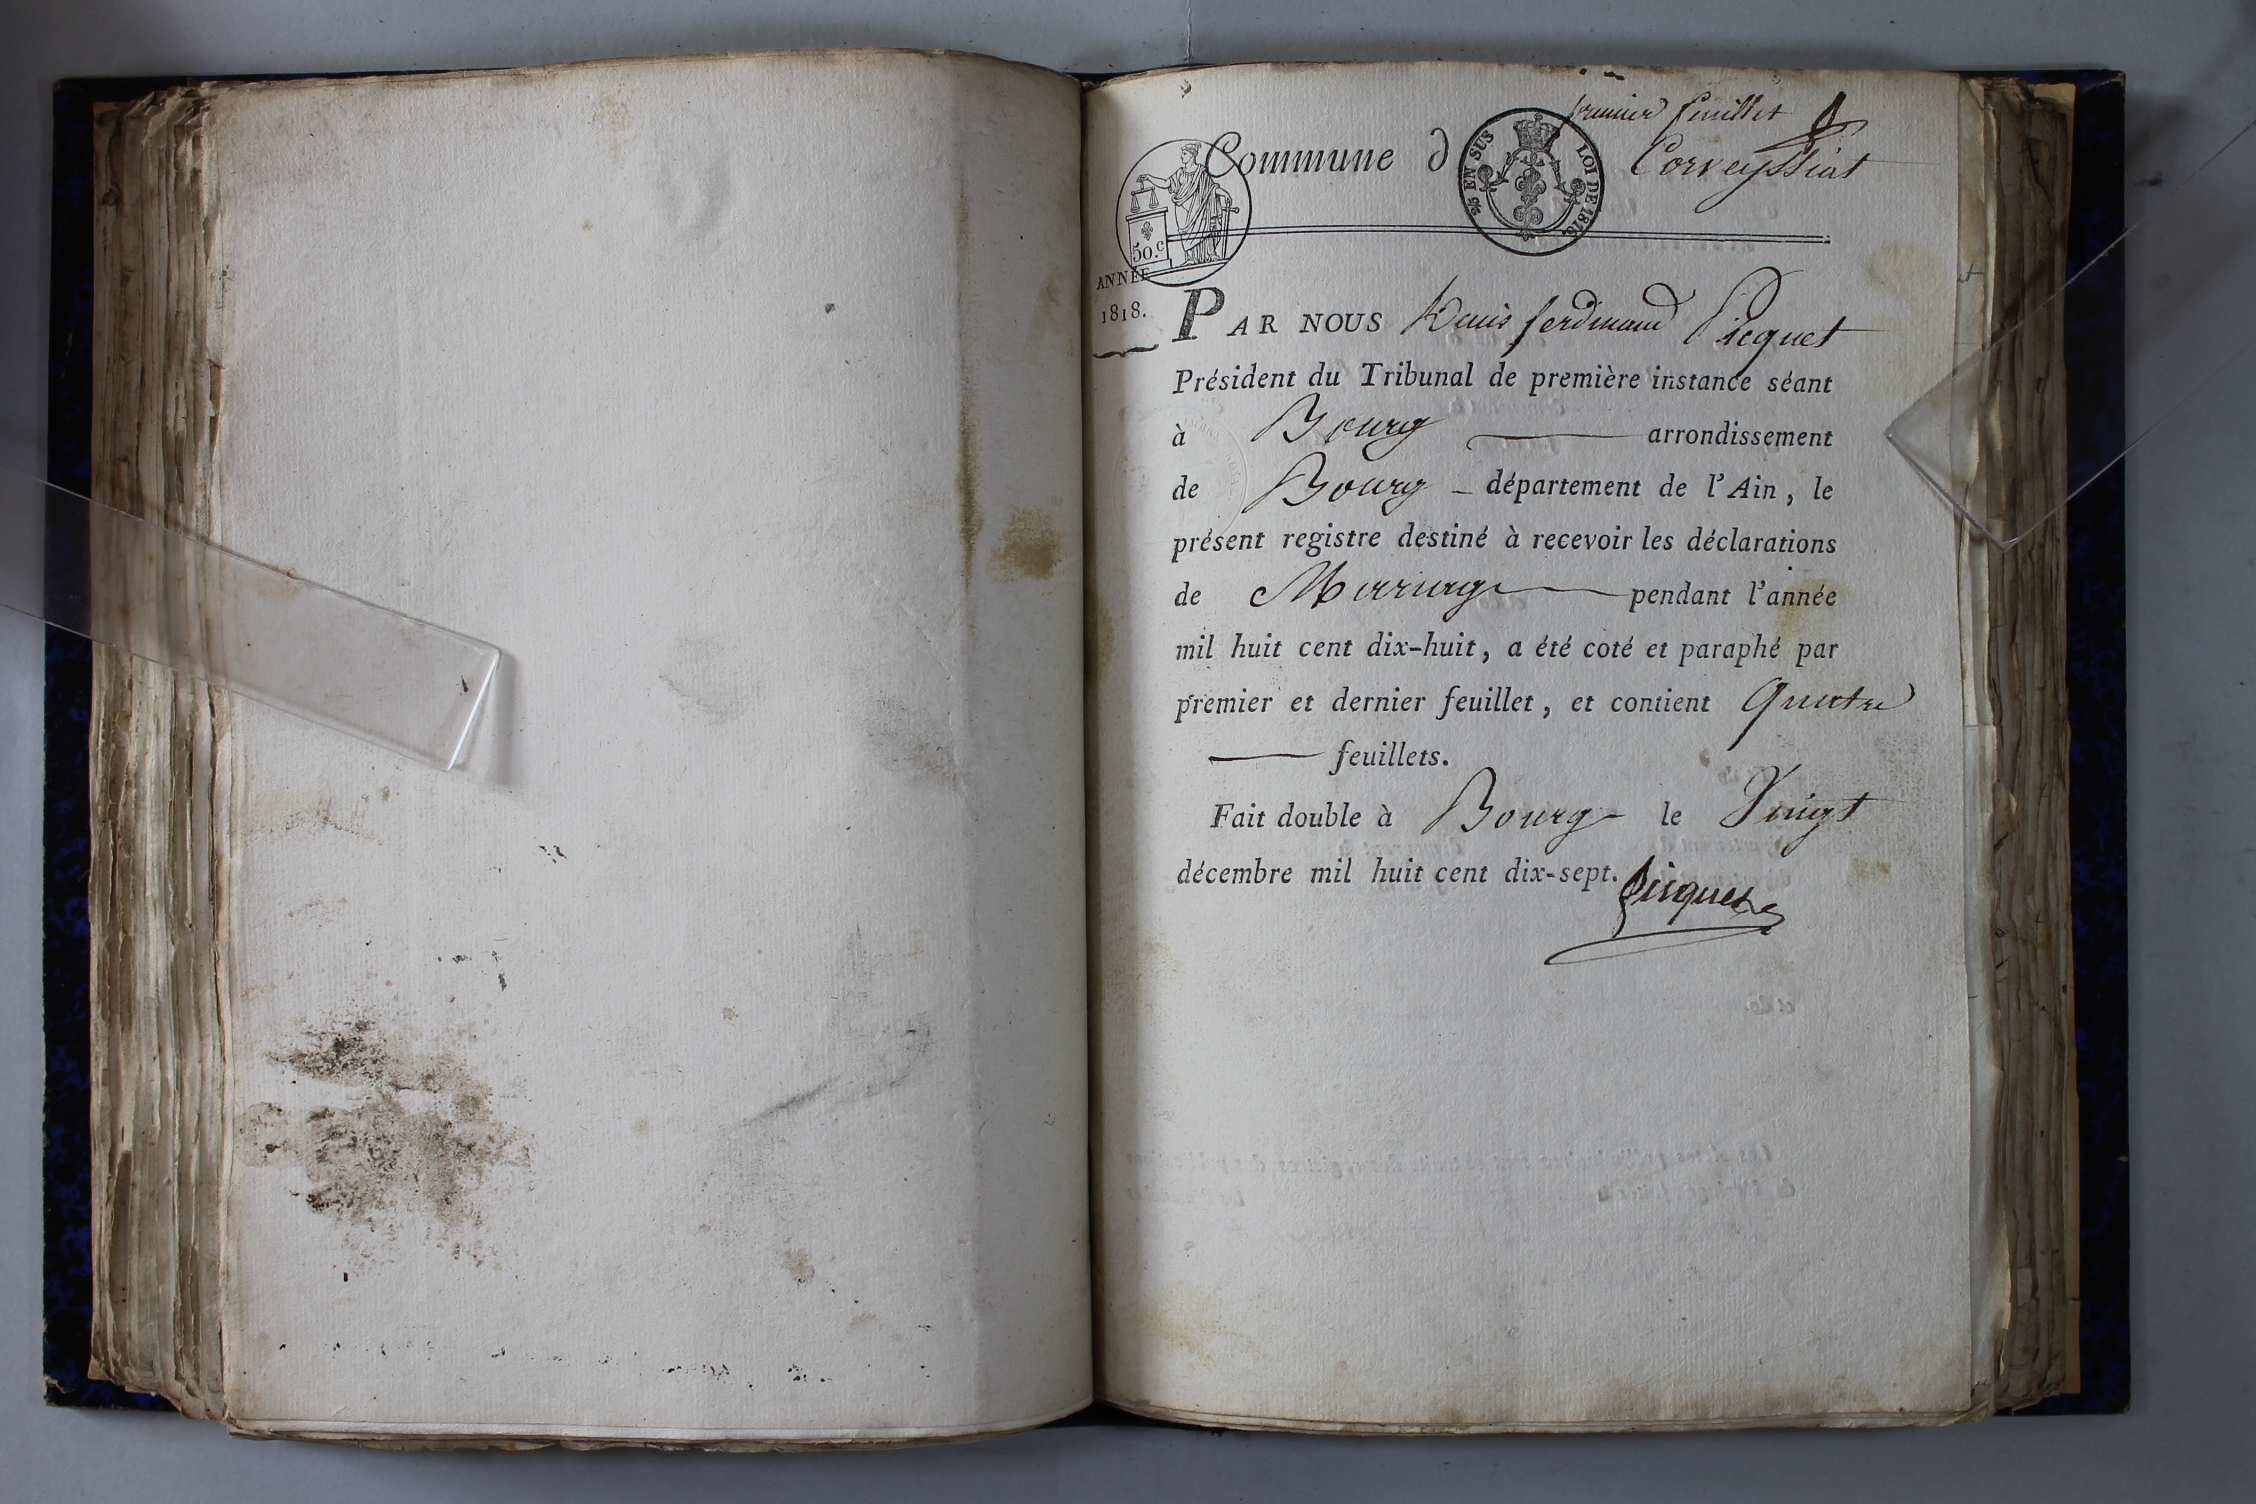 premier feuillet
Commune d Corveyssiat
2/5 EN SUS LOI DE 1816.
50.c
ANNÉE
1818.
PAR NOUS Louis ferdinand Picquet
Président du Tribunal de première instance séant
à Bourg arrondissement
de Bourg département de l'Ain, le
présent registre destiné à recevoir les déclarations
de Mariage pendant l'année
mil huit cent dix-huit, a été coté et paraphé par
premier et dernier feuillet, et contient quatre
feuillets.
Fait double à Bourg le Vingt
décembre mil huit cent dix-sept. Picquet